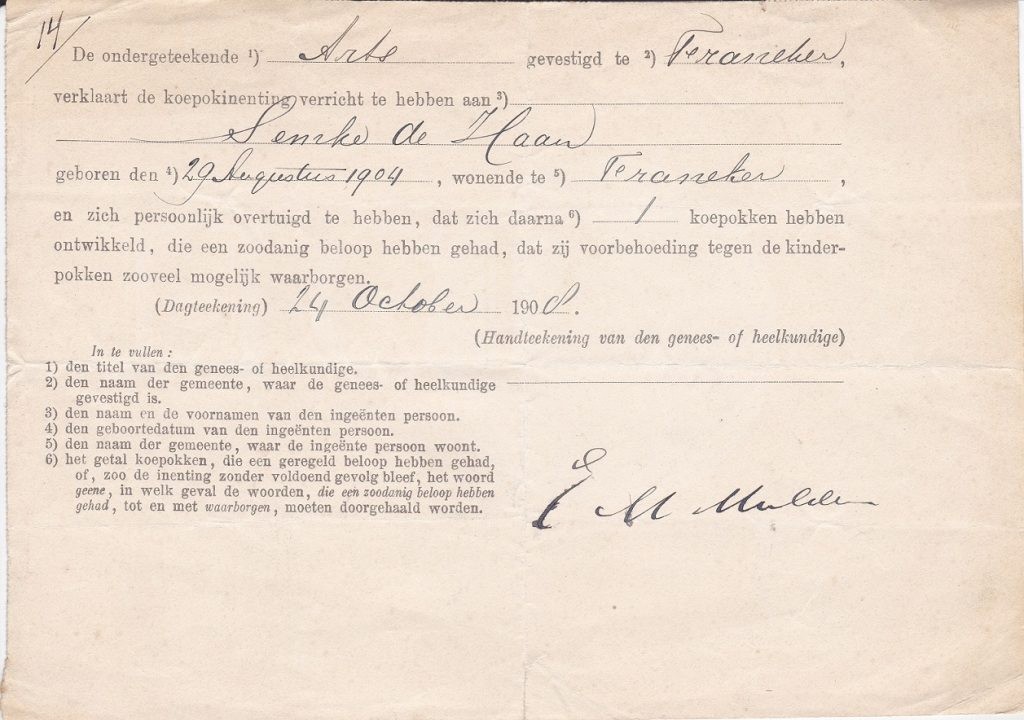 14/
De ondergeteekende ¹) Arts gevestigd te ²) Franeker,
verklaart de koepokinenting verricht te hebben aan ³)
Semke de Haan
geboren den ⁴) 29 Augustus 1904, wonende te ⁵) Franeker,
en zich persoonlijk overtuigd te hebben, dat zich daarna ⁶) 1 koepokken hebben
ontwikkeld, die een zoodanig beloop hebben gehad, dat zij voorbehoeding tegen de kinder-
pokken zooveel mogelijk waarborgen.
(Dagteekening) 24 October 1908.
(Handteekening van den genees- of heelkundige)
In te vullen:
1) den titel van den genees- of heelkundige.
2) den naam der gemeente, waar de genees- of heelkundige
gevestigd is.
3) den naam en de voornamen van den ingeënten persoon.
4) den geboortedatum van den ingeënten persoon.
5) den naam der gemeente, waar de ingeënte persoon woont.
6) het getal koepokken, die een geregeld beloop hebben gehad,
of, zoo de inenting zonder voldoend gevolg bleef, het woord
geene, in welk geval de woorden, die een zoodanig beloop hebben
gehad, tot en met waarborgen, moeten doorgehaald worden.
E M Mulder